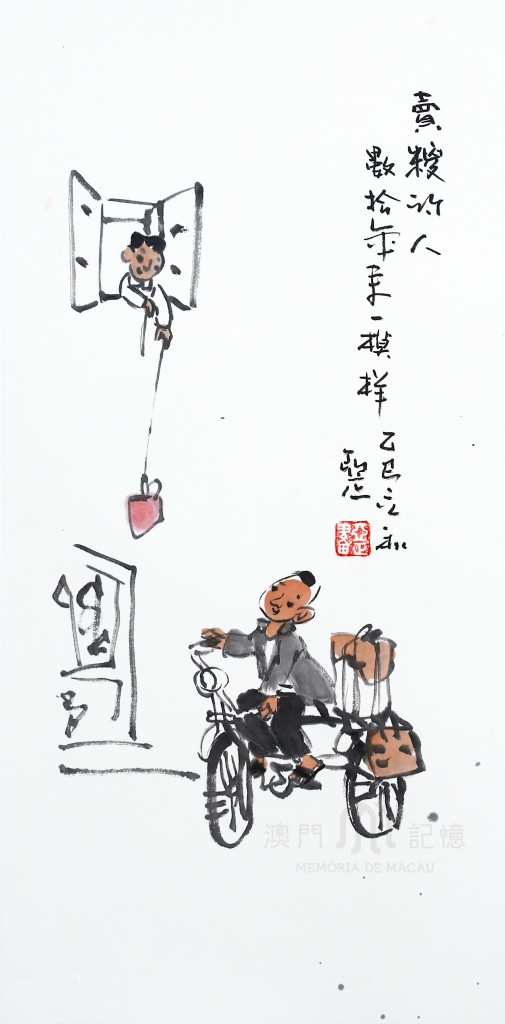 賣糉的人
數拾年來一模樣
乙巳立秋
澳門記憶
MEMÓRIA DE MACAU